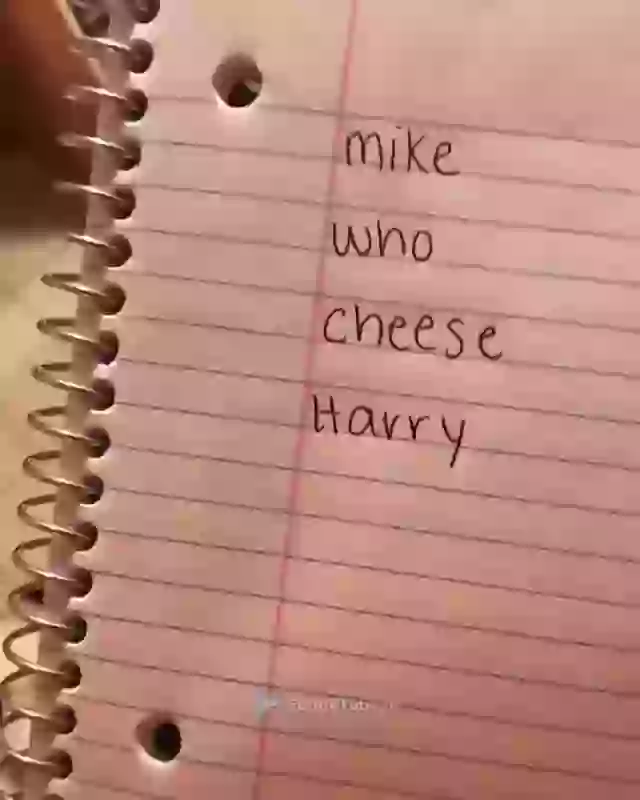 mike
who
cheese
Harry